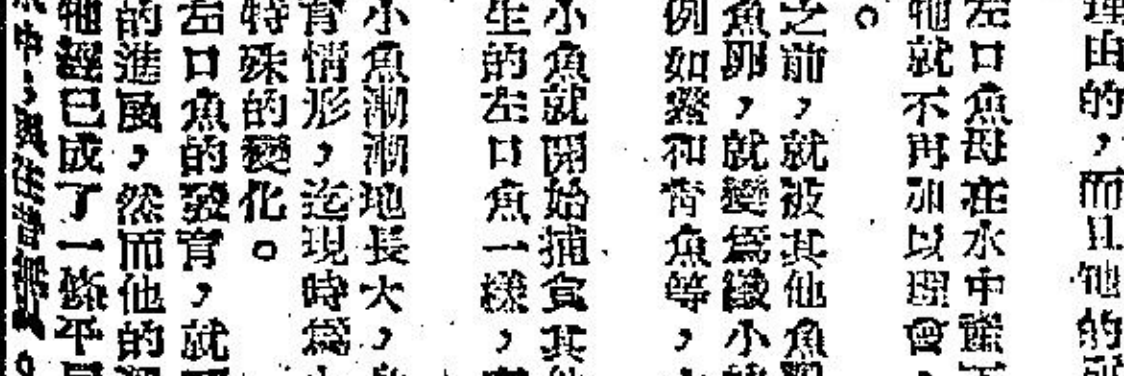 理由的，而且他的
左口魚母在水中產下
牠就不再加以理會，
。
之前，就被其他魚
魚卵，就變爲纖小
例如鱉和青魚等，
小魚就開始捕食其他
生的左口魚一樣，
小魚漸漸地長大，
育情形，迄現時爲
特殊的變化。
左口魚的發育，就
的進展，然而他的
牠經已成了一條平
魚中，與往昔無異。